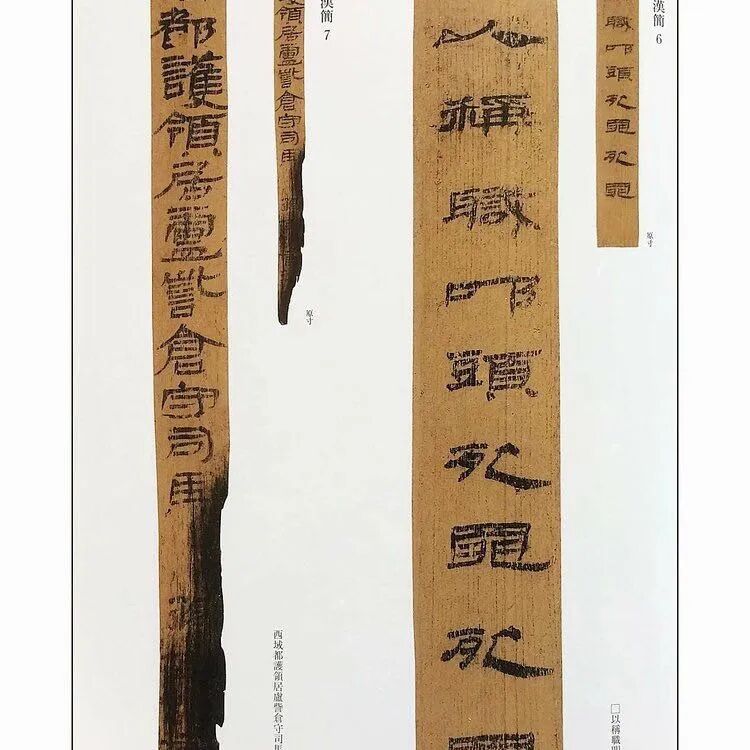 漢簡 6
職叩頭死罪死罪
原寸
□以稱職叩
以稱職叩頭死罪死罪
漢簡 7
領居盧訾倉守司馬
原寸
西域都護領居盧訾倉守司馬
都護領居盧訾倉守司馬